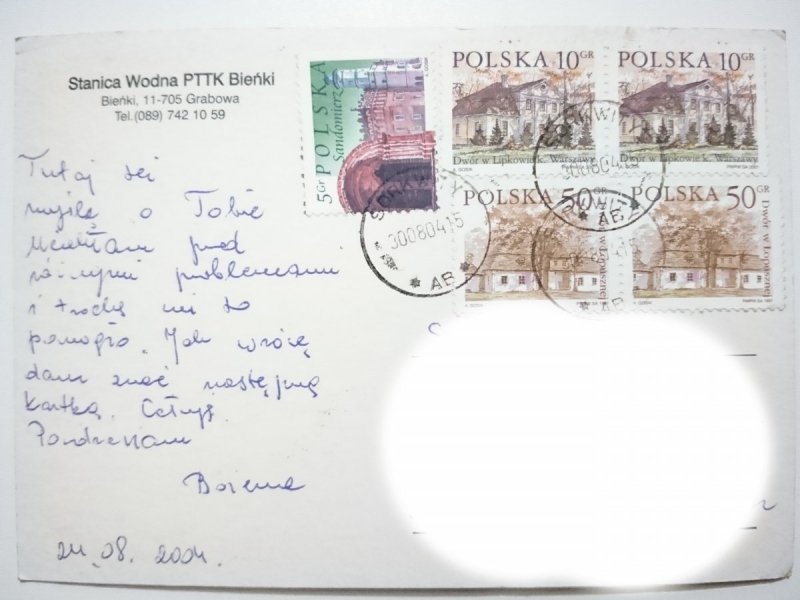 Stanica Wodna PTTK Bieńki
Bieńki, 11-705 Grabowa
Tel.(089) 742 10 59
5GR POLSKA
Sandomierz
POLSKA 10GR
Dwór w Lipkowie k. Warszawy
POLSKA 10GR
Dwór w Lipkowie k. Warszawy
POLSKA 50GR
Dwór w Łopusznej
POLSKA 50GR
Dwór w Łopusznej
SORKWITY
30080415
* AB *
SORKWITY
300804
* AB *
AB
Tutaj
myślę o Tobie
przed
różnymi problemami
i trochę mi to
pomogło. Jak wrócę
dam znać następną
kartką. Całuję.
Pozdrawiam
Bożena
24.08.2004.